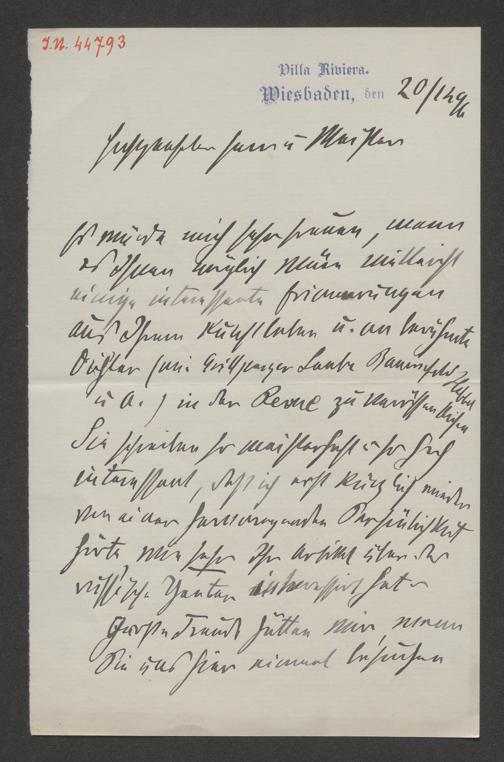 I.N. 44793
Villa Riviera.
Wiesbaden, den 20/12 96
Hochverehrter Herr u Meister
Es würde mich sehr freuen, wenn
es Ihnen möglich wäre vielleicht
einige interessante Erinnerungen
aus Ihrem Kunstleben u. an berühmte
Dichter (wie Grillparzer Laube Bauernfeld Hebbel
u A.) in der Revue zu veröffentlichen
Sie schreiben so meisterhaft u so hoch
interessant, daß ich erst kürzlich wieder
von einer hervorragenden Persönlichkeit
hörte wie sehr Ihr Artikel über das
russische Theater interessirt hat
Große Freude hätten wir, wenn
Sie uns hier einmal besuchen